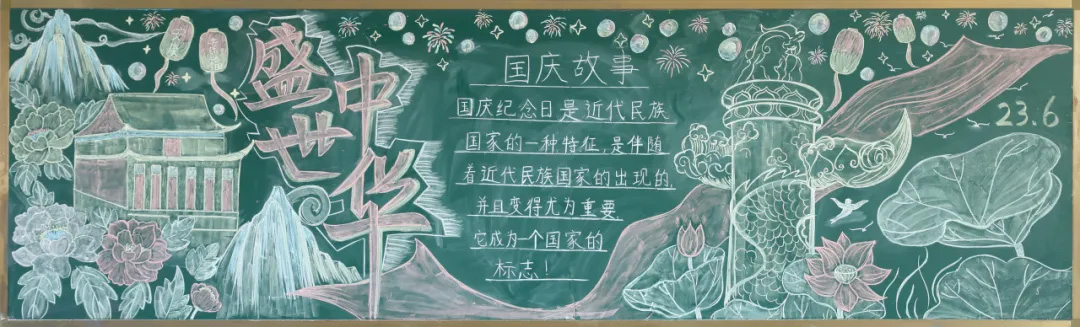 盛世
中华
国庆故事
国庆纪念日是近代民族
国家的一种特征,是伴随
着近代民族国家的出现的,
并且变得尤为重要
它成为一个国家的
标志!
23.6